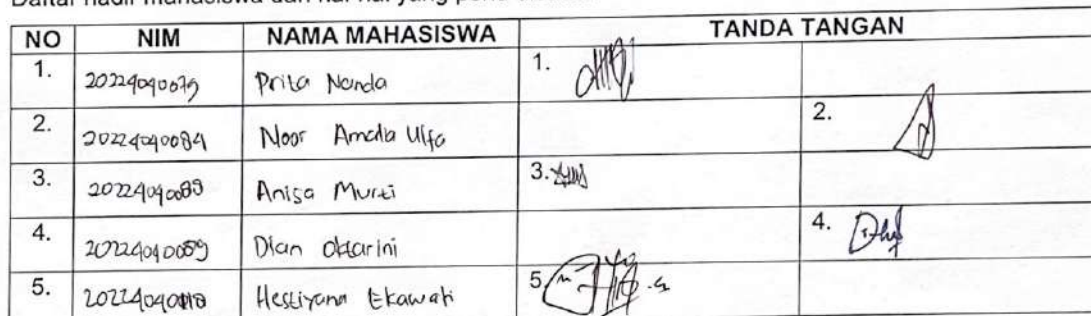 Daftar hadir mahasiswa dan hal-hal yang perlu
NO NIM NAMA MAHASISWA TANDA TANGAN
1. 20224040079 Prita Nanda 1.
2. 20224040084 Noor Amalia Ulfa 2.
3. Anisa Murti 3.
4. Dian Oktarini 4.
5. Hestiyana Ekawati 5.